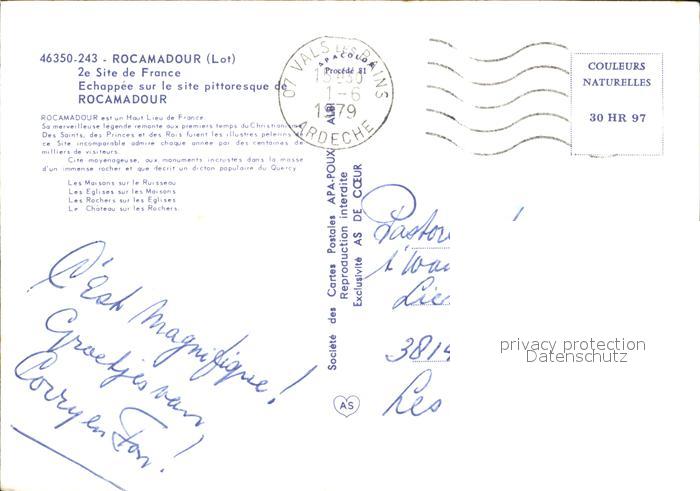 46350-243 - ROCAMADOUR (Lot)
2e Site de France
Echappée sur le site pittoresque de
ROCAMADOUR
ROCAMADOUR est un Haut Lieu de France.
Sa merveilleuse légende remonte aux premiers temps du Christianisme
Des Saints, des Princes et des Rois furent les illustres pèlerins
ce Site incomparable admire chaque année par des centaines de
milliers de visiteurs.
Cité moyenageuse, aux monuments incrustés dans la masse
d'un immense rocher et que décrit un dicton populaire du Quercy
Les Maisons sur le Ruisseau
Les Eglises sur les Maisons
Les Rochers sur les Eglises
Le Château sur les Rochers.
C'est magnifique!
Groetjes van
Corry en Ton!
Société des Cartes Postales APA-POUX ALBI
Reproduction interdite
Exclusivité AS DE CŒUR
AS
APACOULOR
Procédé 81
07 VALS LES BAINS
1-6
1979
ARDECHE
COULEURS
NATURELLES
30 HR 97
Pastor
Lie
3814
Les
privacy protection
Datenschutz